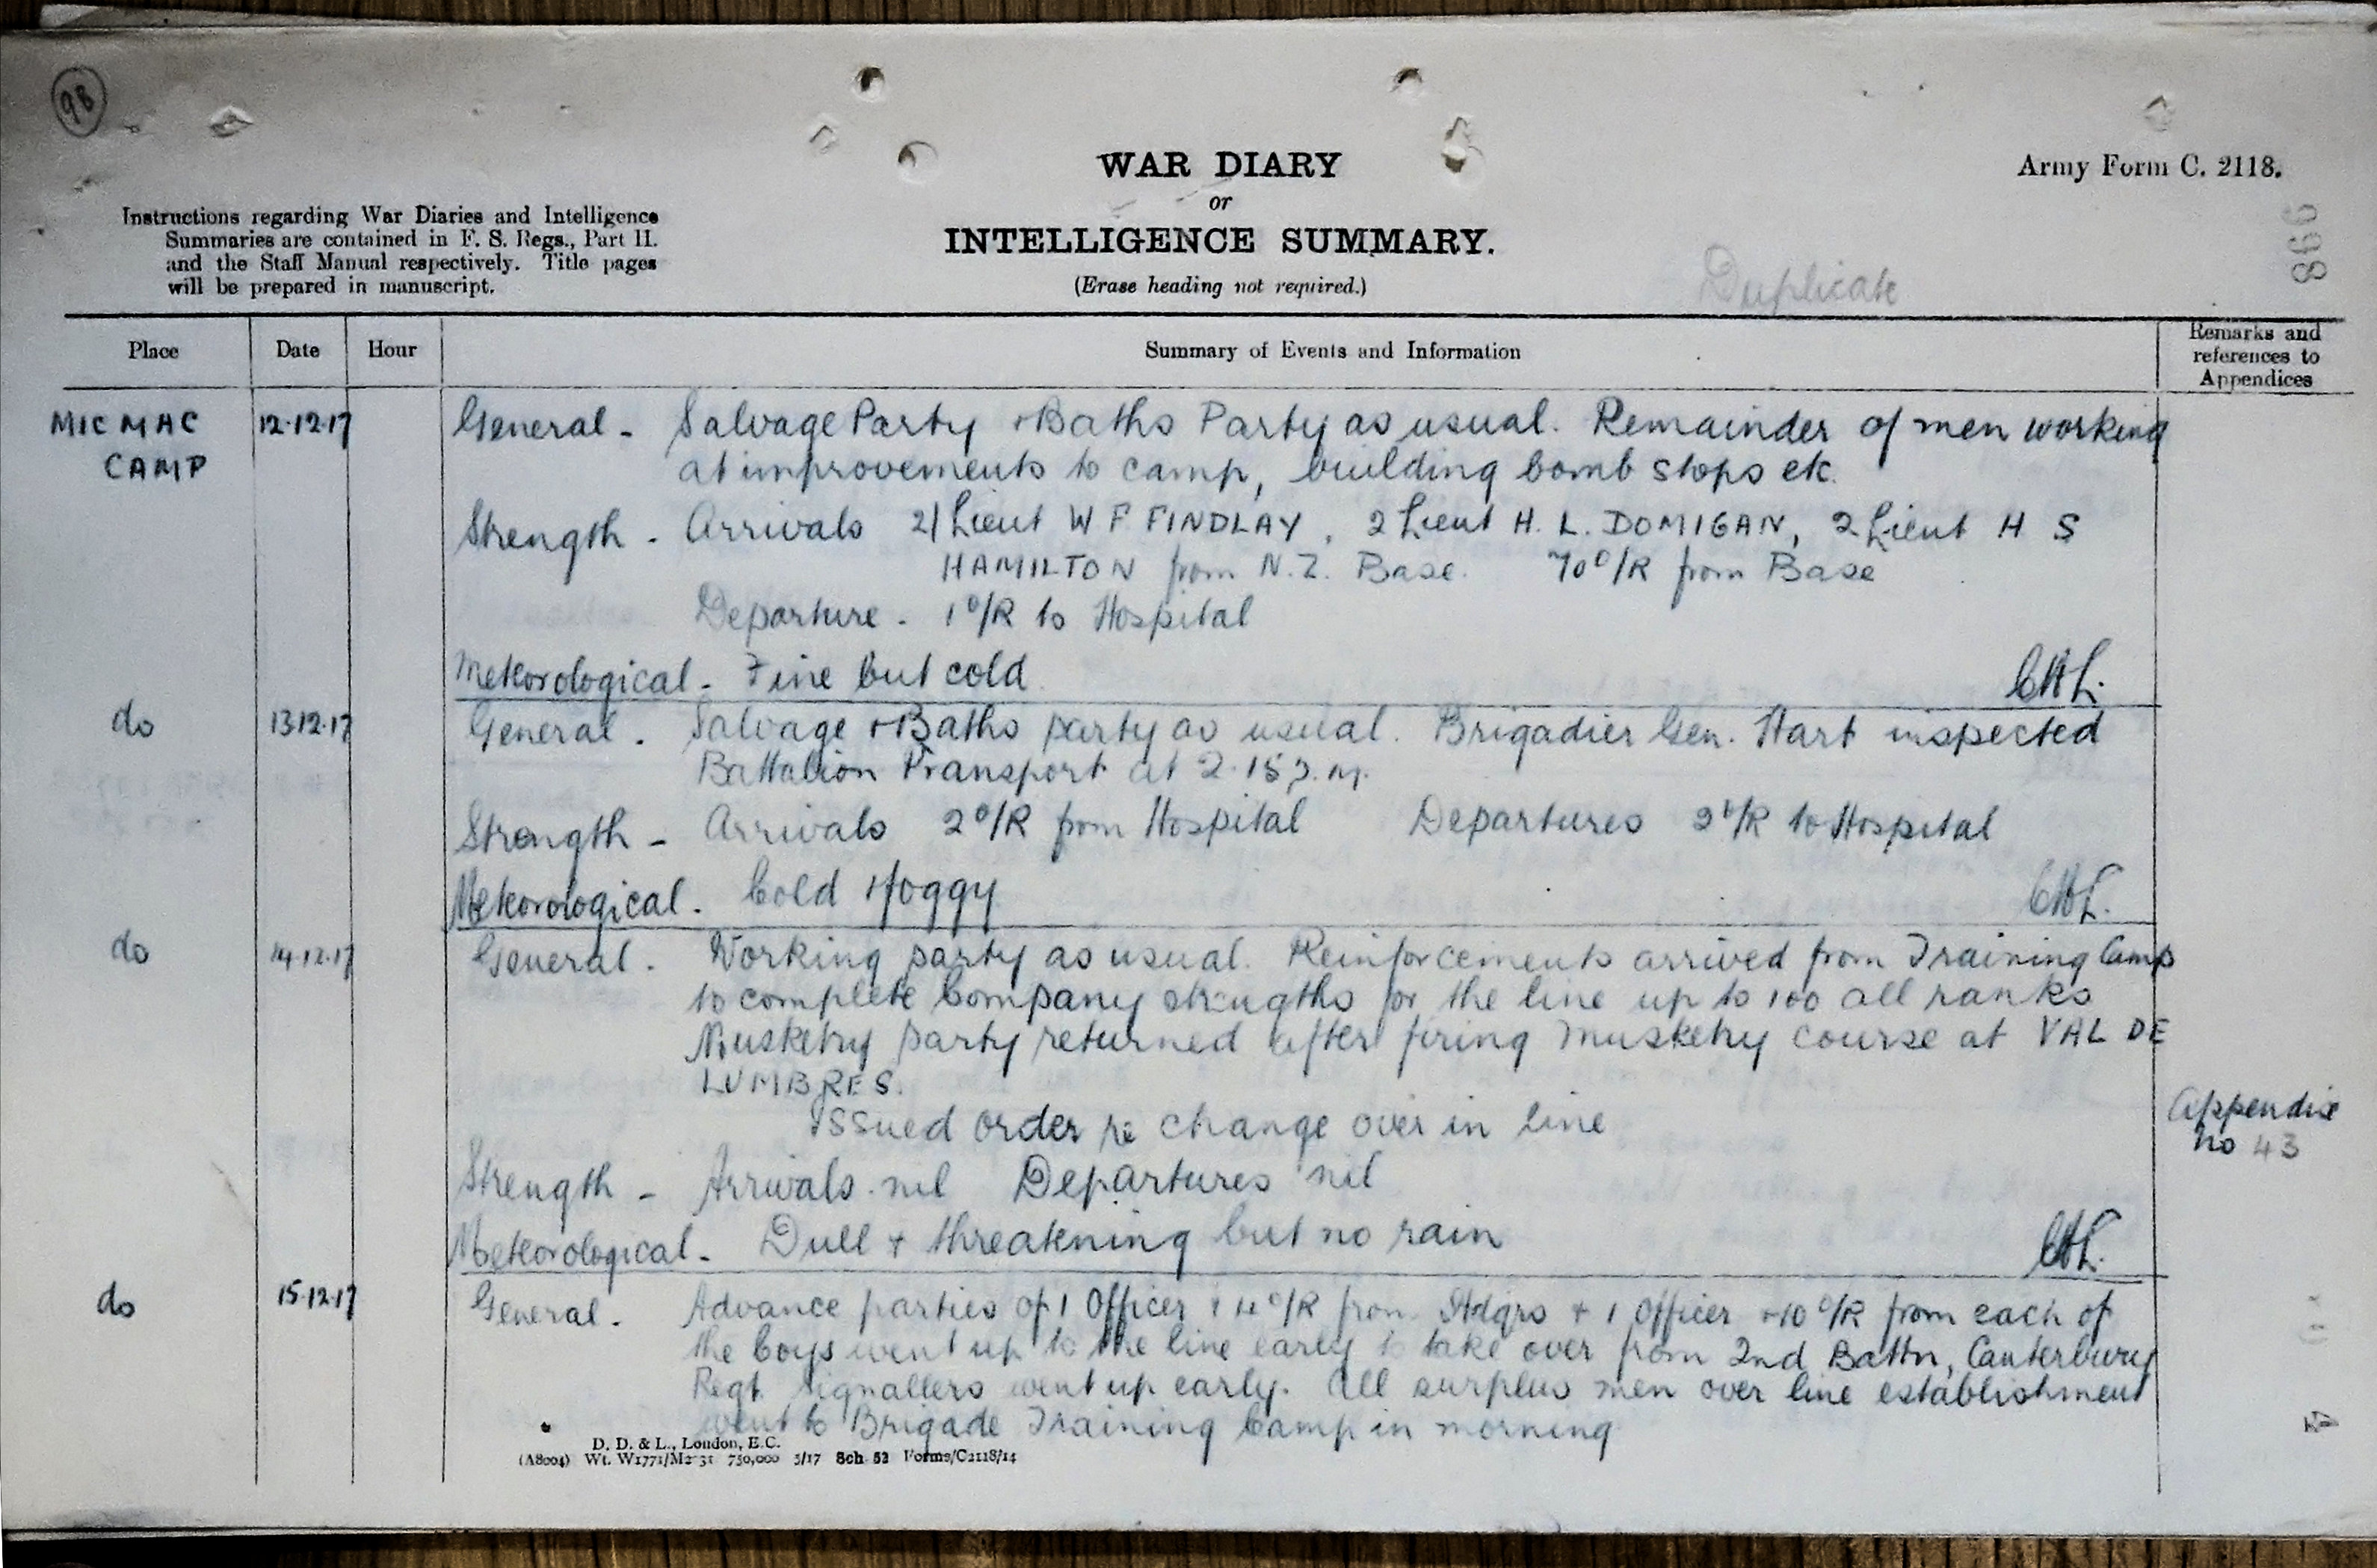 98
WAR DIARY
or
INTELLIGENCE SUMMARY.
(Erase heading not required.)
Army Form C. 2118.
866
Instructions regarding War Diaries and Intelligence
Summaries are contained in F. S. Regs., Part II.
and the Staff Manual respectively. Title pages
will be prepared in manuscript.
Duplicate
Place Date Hour Summary of Events and Information Remarks and
references to
Appendices
MIC MAC 12.12.17 General - Salvage Party + Baths Party as usual. Remainder of men working
CAMP at improvements to camp, building bomb stops etc.
Strength - Arrivals 2/Lieut W F FINDLAY, 2 Lieut H. L. DOMIGAN, 2 Lieut H S
HAMILTON from N.Z. Base. 70 O/R from Base
Departure - 1 O/R to Hospital
Meteorological - Fine but cold
do 13.12.17 General - Salvage + Baths party as usual. Brigadier Gen. Hart inspected
Battalion Transport at 2.15 p.m.
Strength - Arrivals 2 O/R from Hospital Departures 2 O/R to Hospital
Meteorological - Cold + foggy
do 14.12.17 General - Working party as usual. Reinforcements arrived from Training Camp
to complete Company strengths for the line up to 100 all ranks
Musketry party returned after firing musketry course at VAL DE
LUMBRES.
Issued order re change over in line Appendix
no 43
Strength - Arrivals nil Departures nil
Meteorological - Dull + threatening but no rain
do 15.12.17 General - Advance parties of 1 Officer + 4 O/R from Hdqrs + 1 Officer + 10 O/R from each of
the Coys went up to the line early to take over from 2nd Battn, Canterbury
Regt. Signallers went up early. All surplus men over line establishment
went to Brigade Training Camp in morning
D. D. & L., London, E.C.
(A8004) Wt. W1771/M2 31 750,000 5/17 Sch 52 Forms/C2118/14